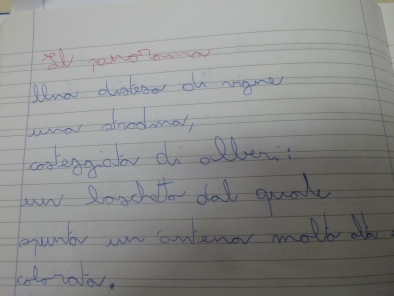 Il panorama
Una distesa di vigne
una stradina,
costeggiata di alberi:
un boschetto dal quale
spunta un'antena molto alta e
colorata.